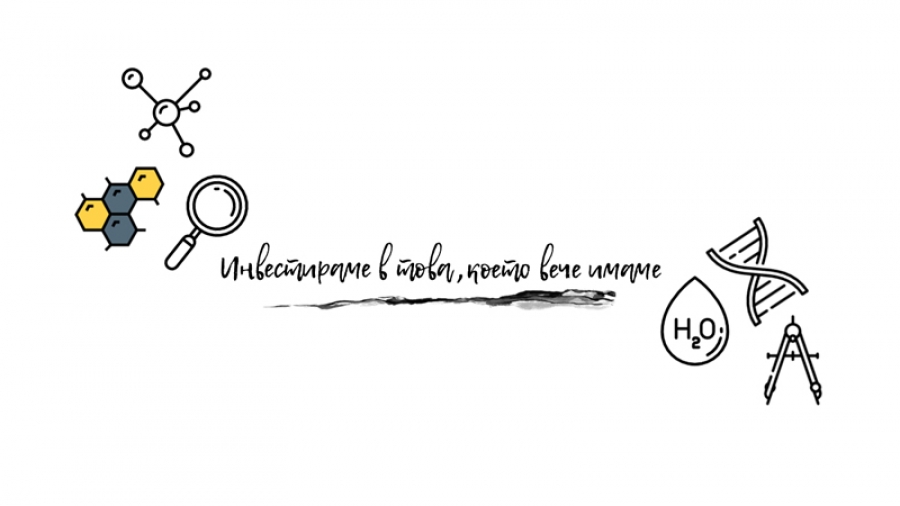 Инвестираме в това, което вече имаме
H₂O